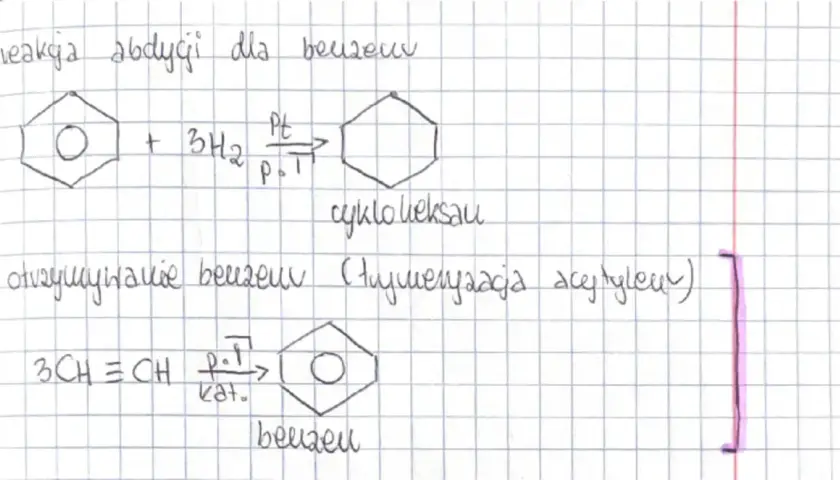 reakcja abdycji dla benzenu
+ 3H2 Pt p.T
cykloheksan
otrzymywanie benzenu (trymeryzacja acetylenu)
3CH ≡ CH p.T kat.
benzen